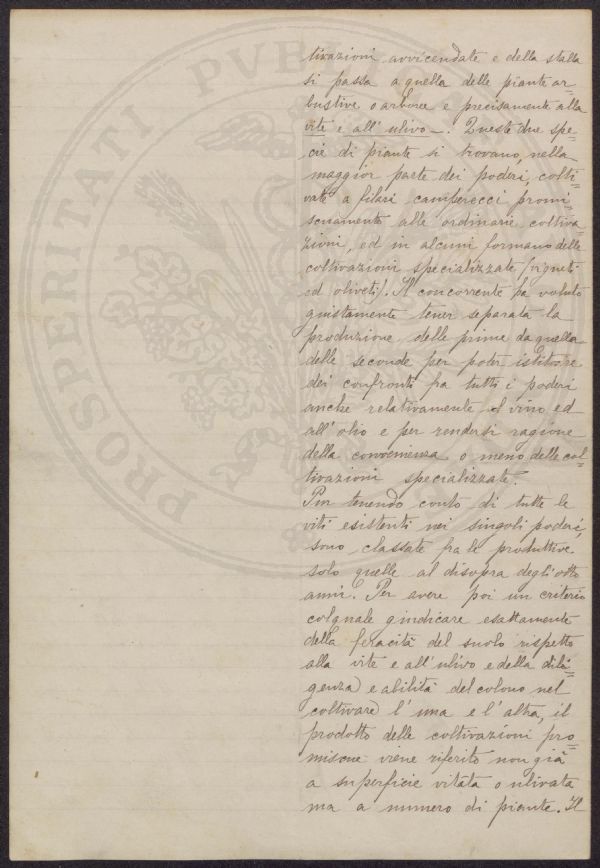 tivazioni avvicendate e della stalla
si passa a quella delle piante ar=
bustive o arboree e precisamente alla
vite e all'ulivo —. Queste due spe=
cie di piante si trovano, nella
maggior parte dei poderi, colti=
vate a filari camperecci promi=
scuamente alle ordinarie coltiva=
zioni, ed in alcuni formano delle
coltivazioni specializzate (vigneti
ed oliveti). Il concorrente ha voluto
giustamente tener separata la
produzione delle prime da quella
delle seconde per poter istituire
dei confronti fra tutti i poderi
anche relativamente al vino ed
all'olio e per rendersi ragione
della convenienza o meno delle col=
tivazioni specializzate.
Pur tenendo conto di tutte le
viti esistenti nei singoli poderi,
sono classate fra le produttive
solo quelle al disopra degli otto
anni. Per avere poi un criterio
col quale giudicare esattamente
della feracità del suolo rispetto
alla vite e all'ulivo e della dili=
genza e abilità del colono nel
coltivare l'una e l'altra, il
prodotto delle coltivazioni pro=
miscue viene riferito non già
a superficie vitata o ulivata
ma a numero di piante. Il
PROSPERITATI PVBL